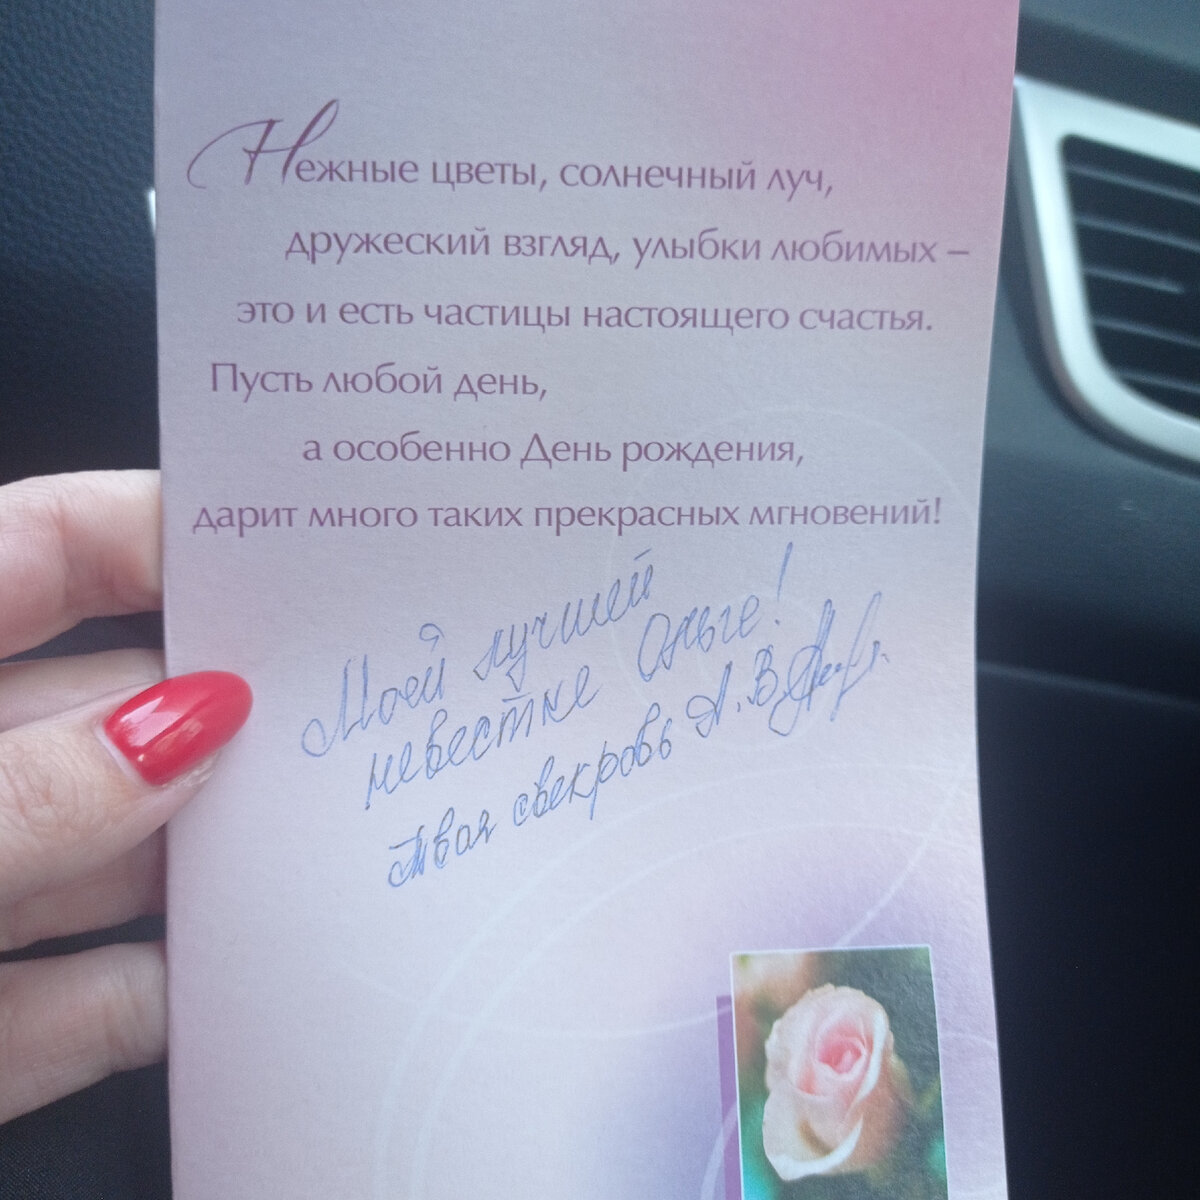 Нежные цветы, солнечный луч,
дружеский взгляд, улыбки любимых –
это и есть частицы настоящего счастья.
Пусть любой день,
а особенно День рождения,
дарит много таких прекрасных мгновений!
Моей лучшей
невестке Ольге!
Твоя свекровь А.В.